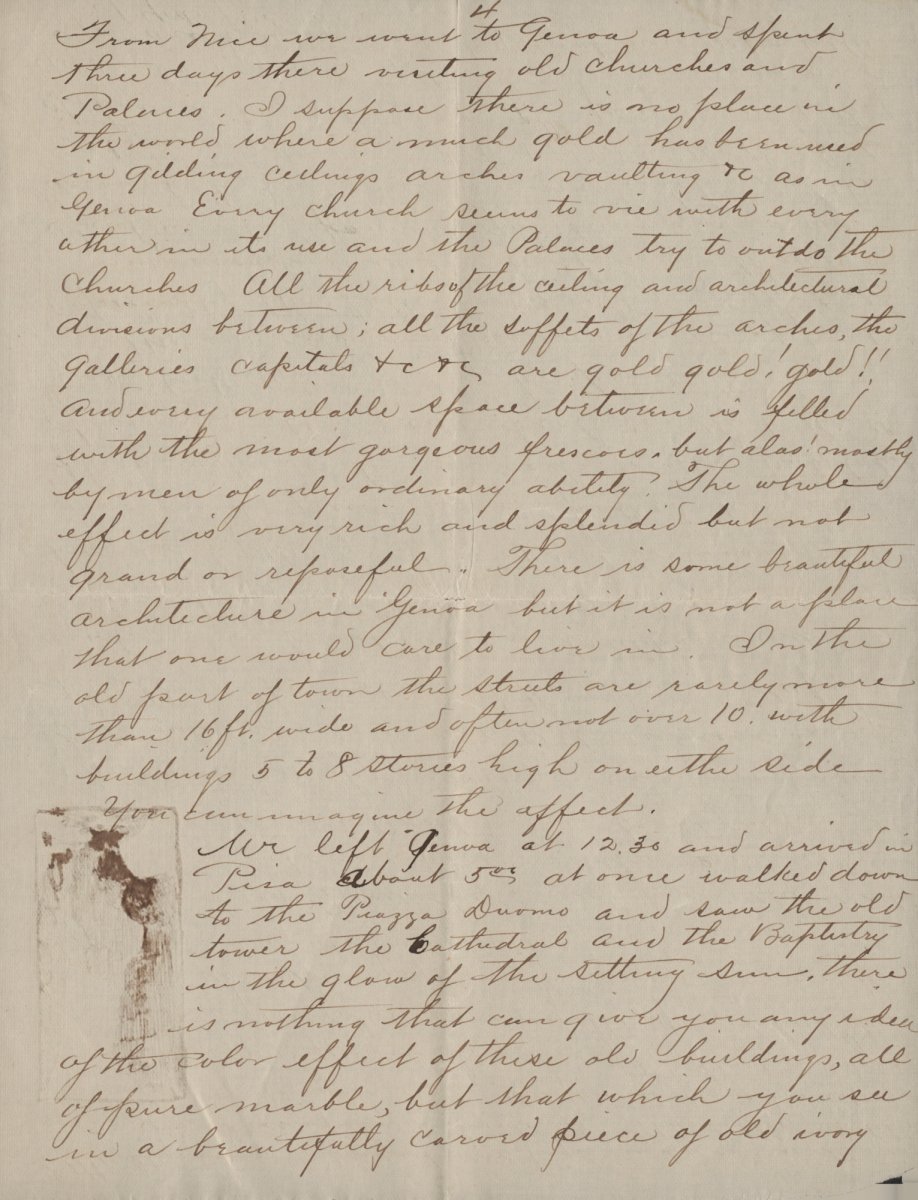 4
From Nice we went to Genoa and spent
three days there visiting old churches and
Palaces. I suppose there is no place in
the world where a much gold has been used
in gilding ceilings arches vaulting &c as in
Genoa Every church seems to vie with every
other in its use and the Palaces try to outdo the
Churches All the ribs of the ceiling and architectural
divisions between; all the soffets of the arches, the
galleries capitals &c &c are gold gold! gold!!
And every available space between is filled
with the most gorgeous frescoes. but alas! mostly
by men of only ordinary ability. The whole
effect is very rich and splendid but not
grand or reposeful. There is some beautiful
architecture in Genoa but it is not a place
that one would care to live in. In the
old part of town the streets are rarely more
than 16 ft. wide and often not over 10. with
buildings 5 to 8 stories high on eithe side
You can imagine the affect.
We left Genoa at 12.30 and arrived in
Pisa about 5 at once walked down
to the Piazza Duomo and saw the old
tower the Cathedral and the Baptistry
in the glow of the setting sun, there
is nothing that can give you any idea
of the color effect of these old buildings, all
of pure marble, but that which you see
in a beautifully carved piece of old ivory